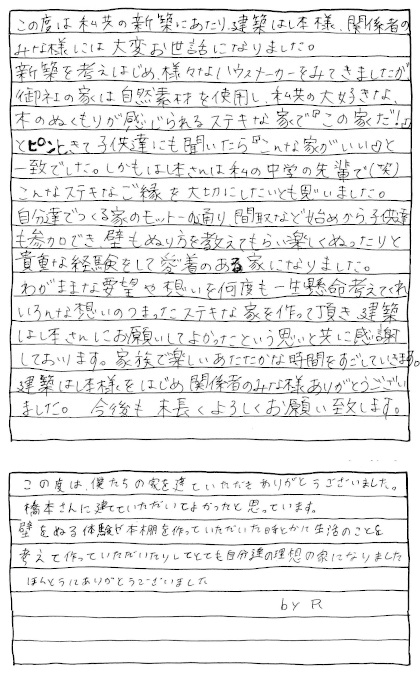 この度は私共の新築にあたり建築はし本様、関係者の
みな様には大変お世話になりました。
新築を考えはじめ、様々なハウスメーカーをみてきましたが
御社の家は自然素材を使用し、私共の大好きな、
木のぬくもりが感じられるステキな家で『この家だ!』
とピンときて子供達にも聞いたら『こんな家がいい』と
一致でした。しかもはし本さんは私の中学の先輩で(笑)
こんなステキなご縁を大切にしたいとも思いました。
自分達でつくる家のモットーの通り間取など始めから子供達
も参加でき、壁もぬり方を教えてもらい楽しくぬったりと
貴重な経験をして愛着のある家になりました。
わがままな要望や想いを何度も一生懸命考えてくれ
いろんな想いのつまったステキな家を作って頂き建築
はし本さんにお願いしてよかったという思いと共に感謝
しております。家族で楽しいあたたかな時間をすごしていきます。
建築はし本様をはじめ関係者のみな様ありがとうござい
ました。 今後も末長くよろしくお願い致します。
この度は、僕たちの家を建ていただきありがとうございました。
橋本さんに建てていただいてよかったと思っています。
壁をぬる体験や本棚を作っていただいた時とかに生活のことを
考えて作っていただいたりしてとても自分達の理想の家になりました
ほんとうにありがとうございました
by R